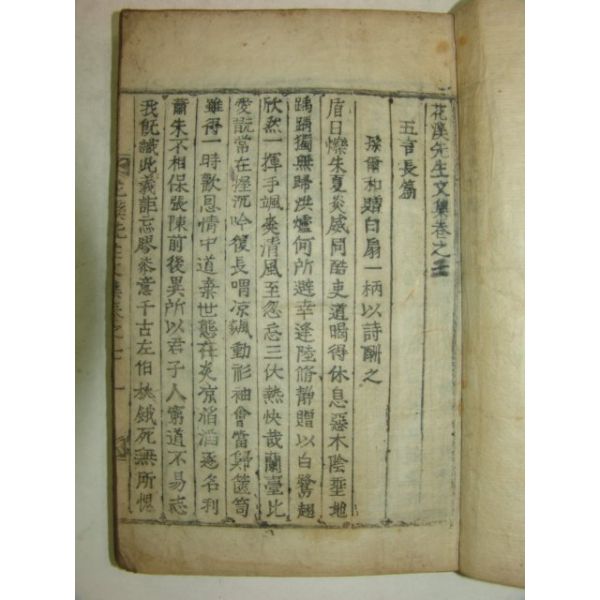 花溪先生文集卷之
五言長篇
爾和贈白扇一柄以詩酬之
眉日爍朱夏炎威同酷吏道暍得休息惡木陰垂地
踽踽獨無歸洪爐何所避幸逢陸脩靜贈以白鷺翅
欣然一揮手颯爽清風至忽忘三伏熱快哉蘭臺比
愛翫常在握沉吟復長喟凉飈動衫袖會當歸篋笥
雖得一時歡恩情中道棄世態在炎凉滔滔逐名利
蕭朱不相保張陳前後異所以君子人窮道不易志
我旣識此義詎忘膠漆意千古左伯桃餓死無所愧
花溪先生文集卷之七 一